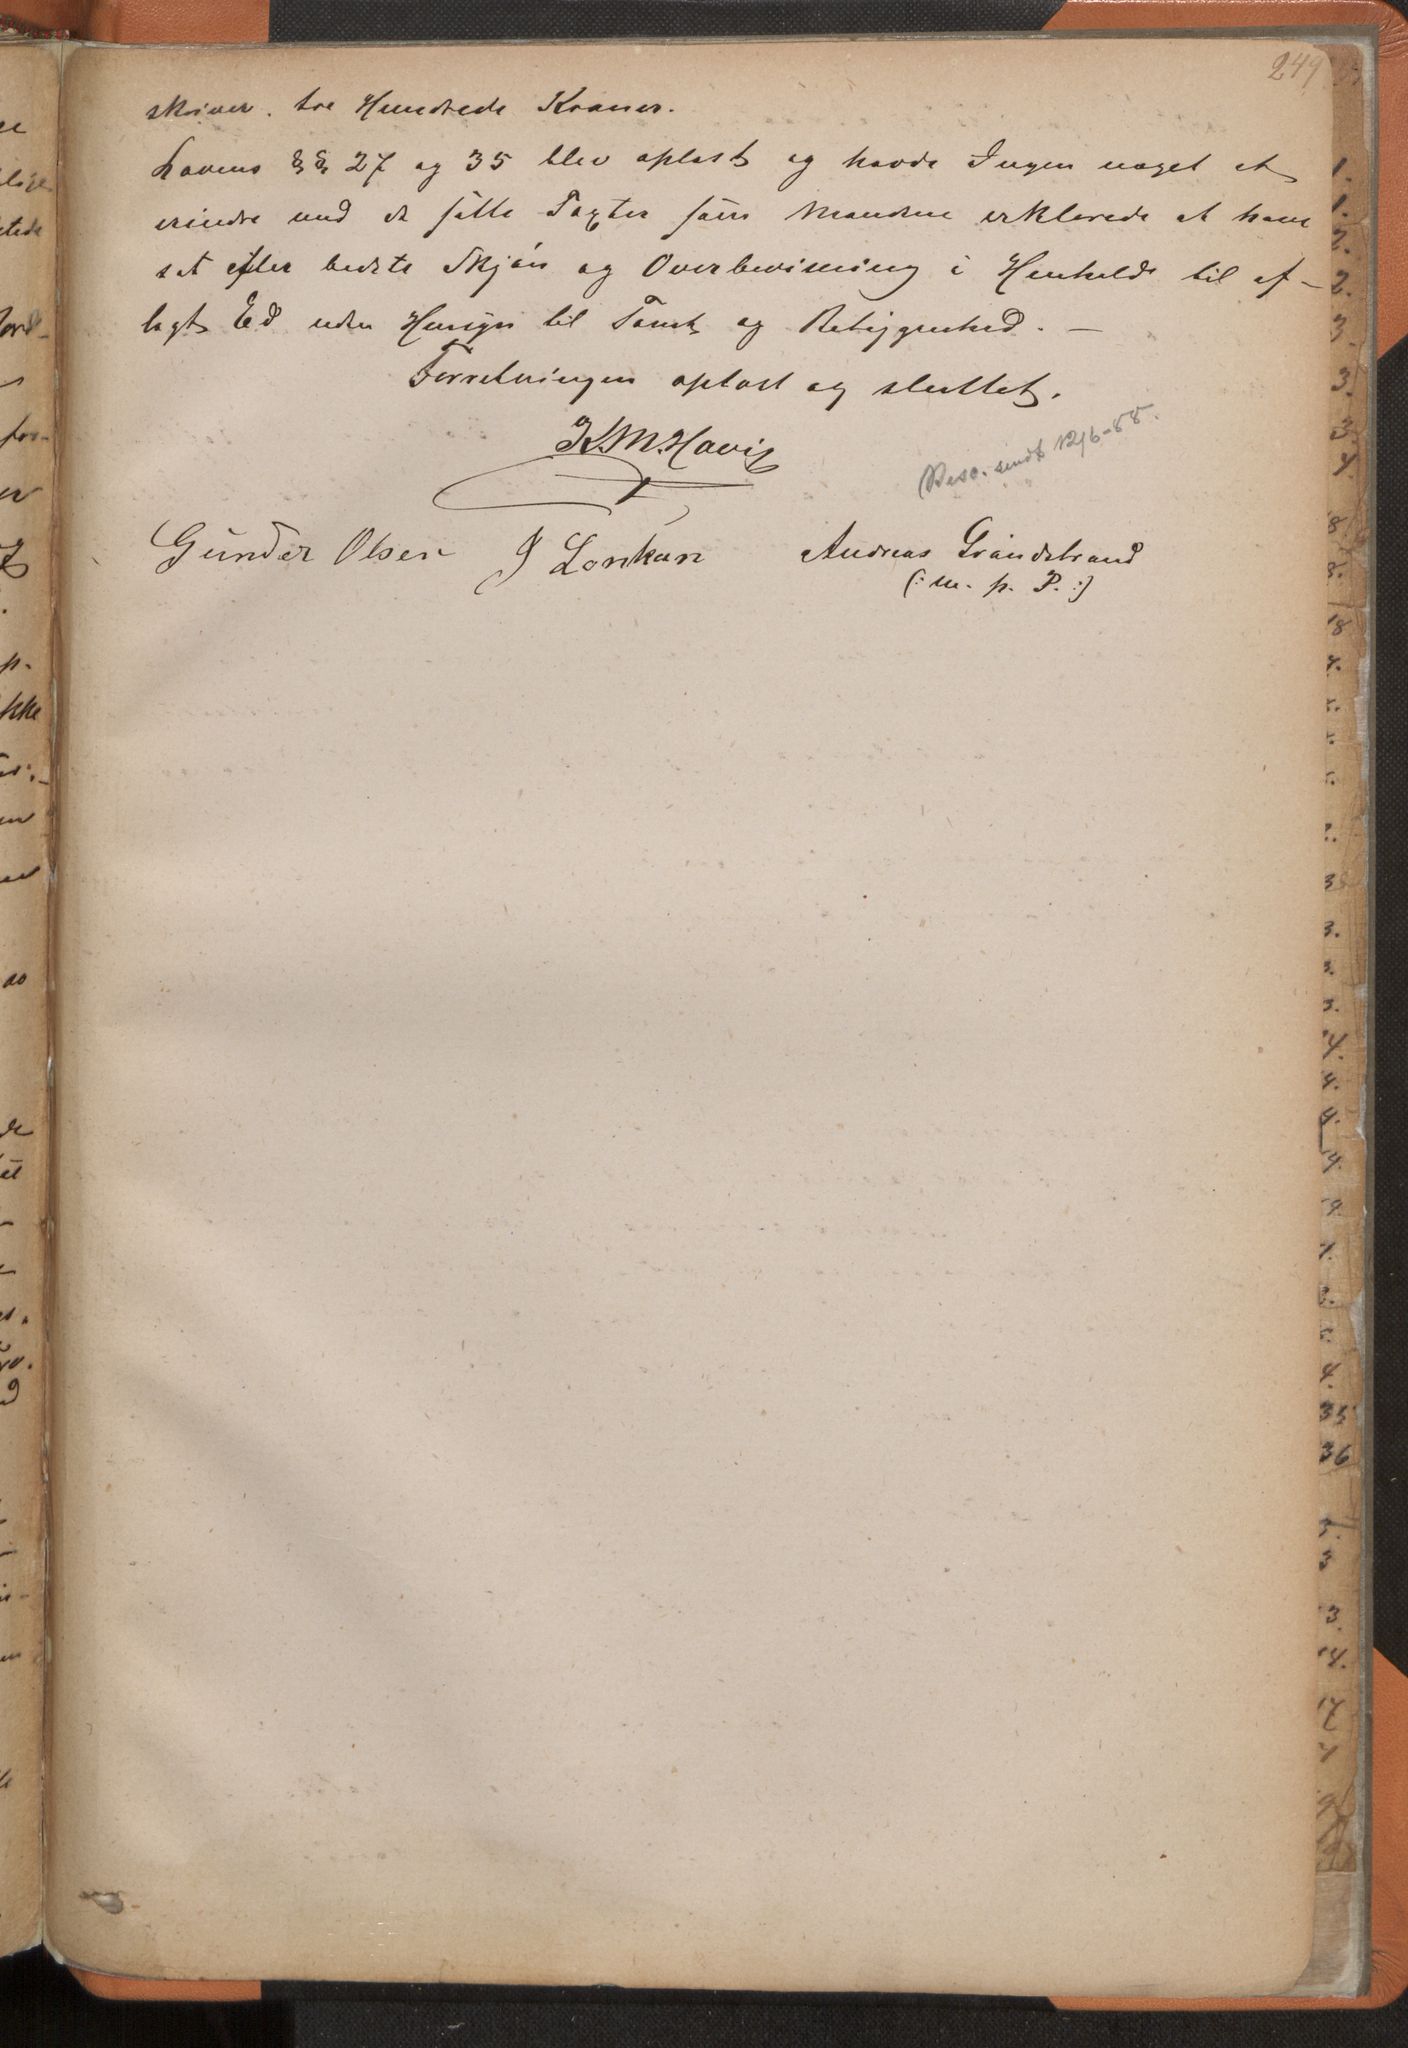 249
skriver. tre Hundrede Kroner.
Lovens §§ 27 og 35 blev oplæst og havde Ingen noget at
erindre mod de satte Taxter som Mændene erklærede at have
sat efter bedste Skjøn og Overbevisning i Henhold til af-
lagt Ed uden Hensyn til Tomt og Beliggenhed. —
Forretningen oplæst og sluttet.
K.M. Havig
Besc. sendt 12/6-88.
Gunder Olsen J Lonkan Andreas Grandstrand
(: m. p. P. :)